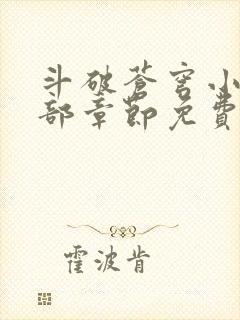 斗破苍穹小
部章節免費
霍波肯